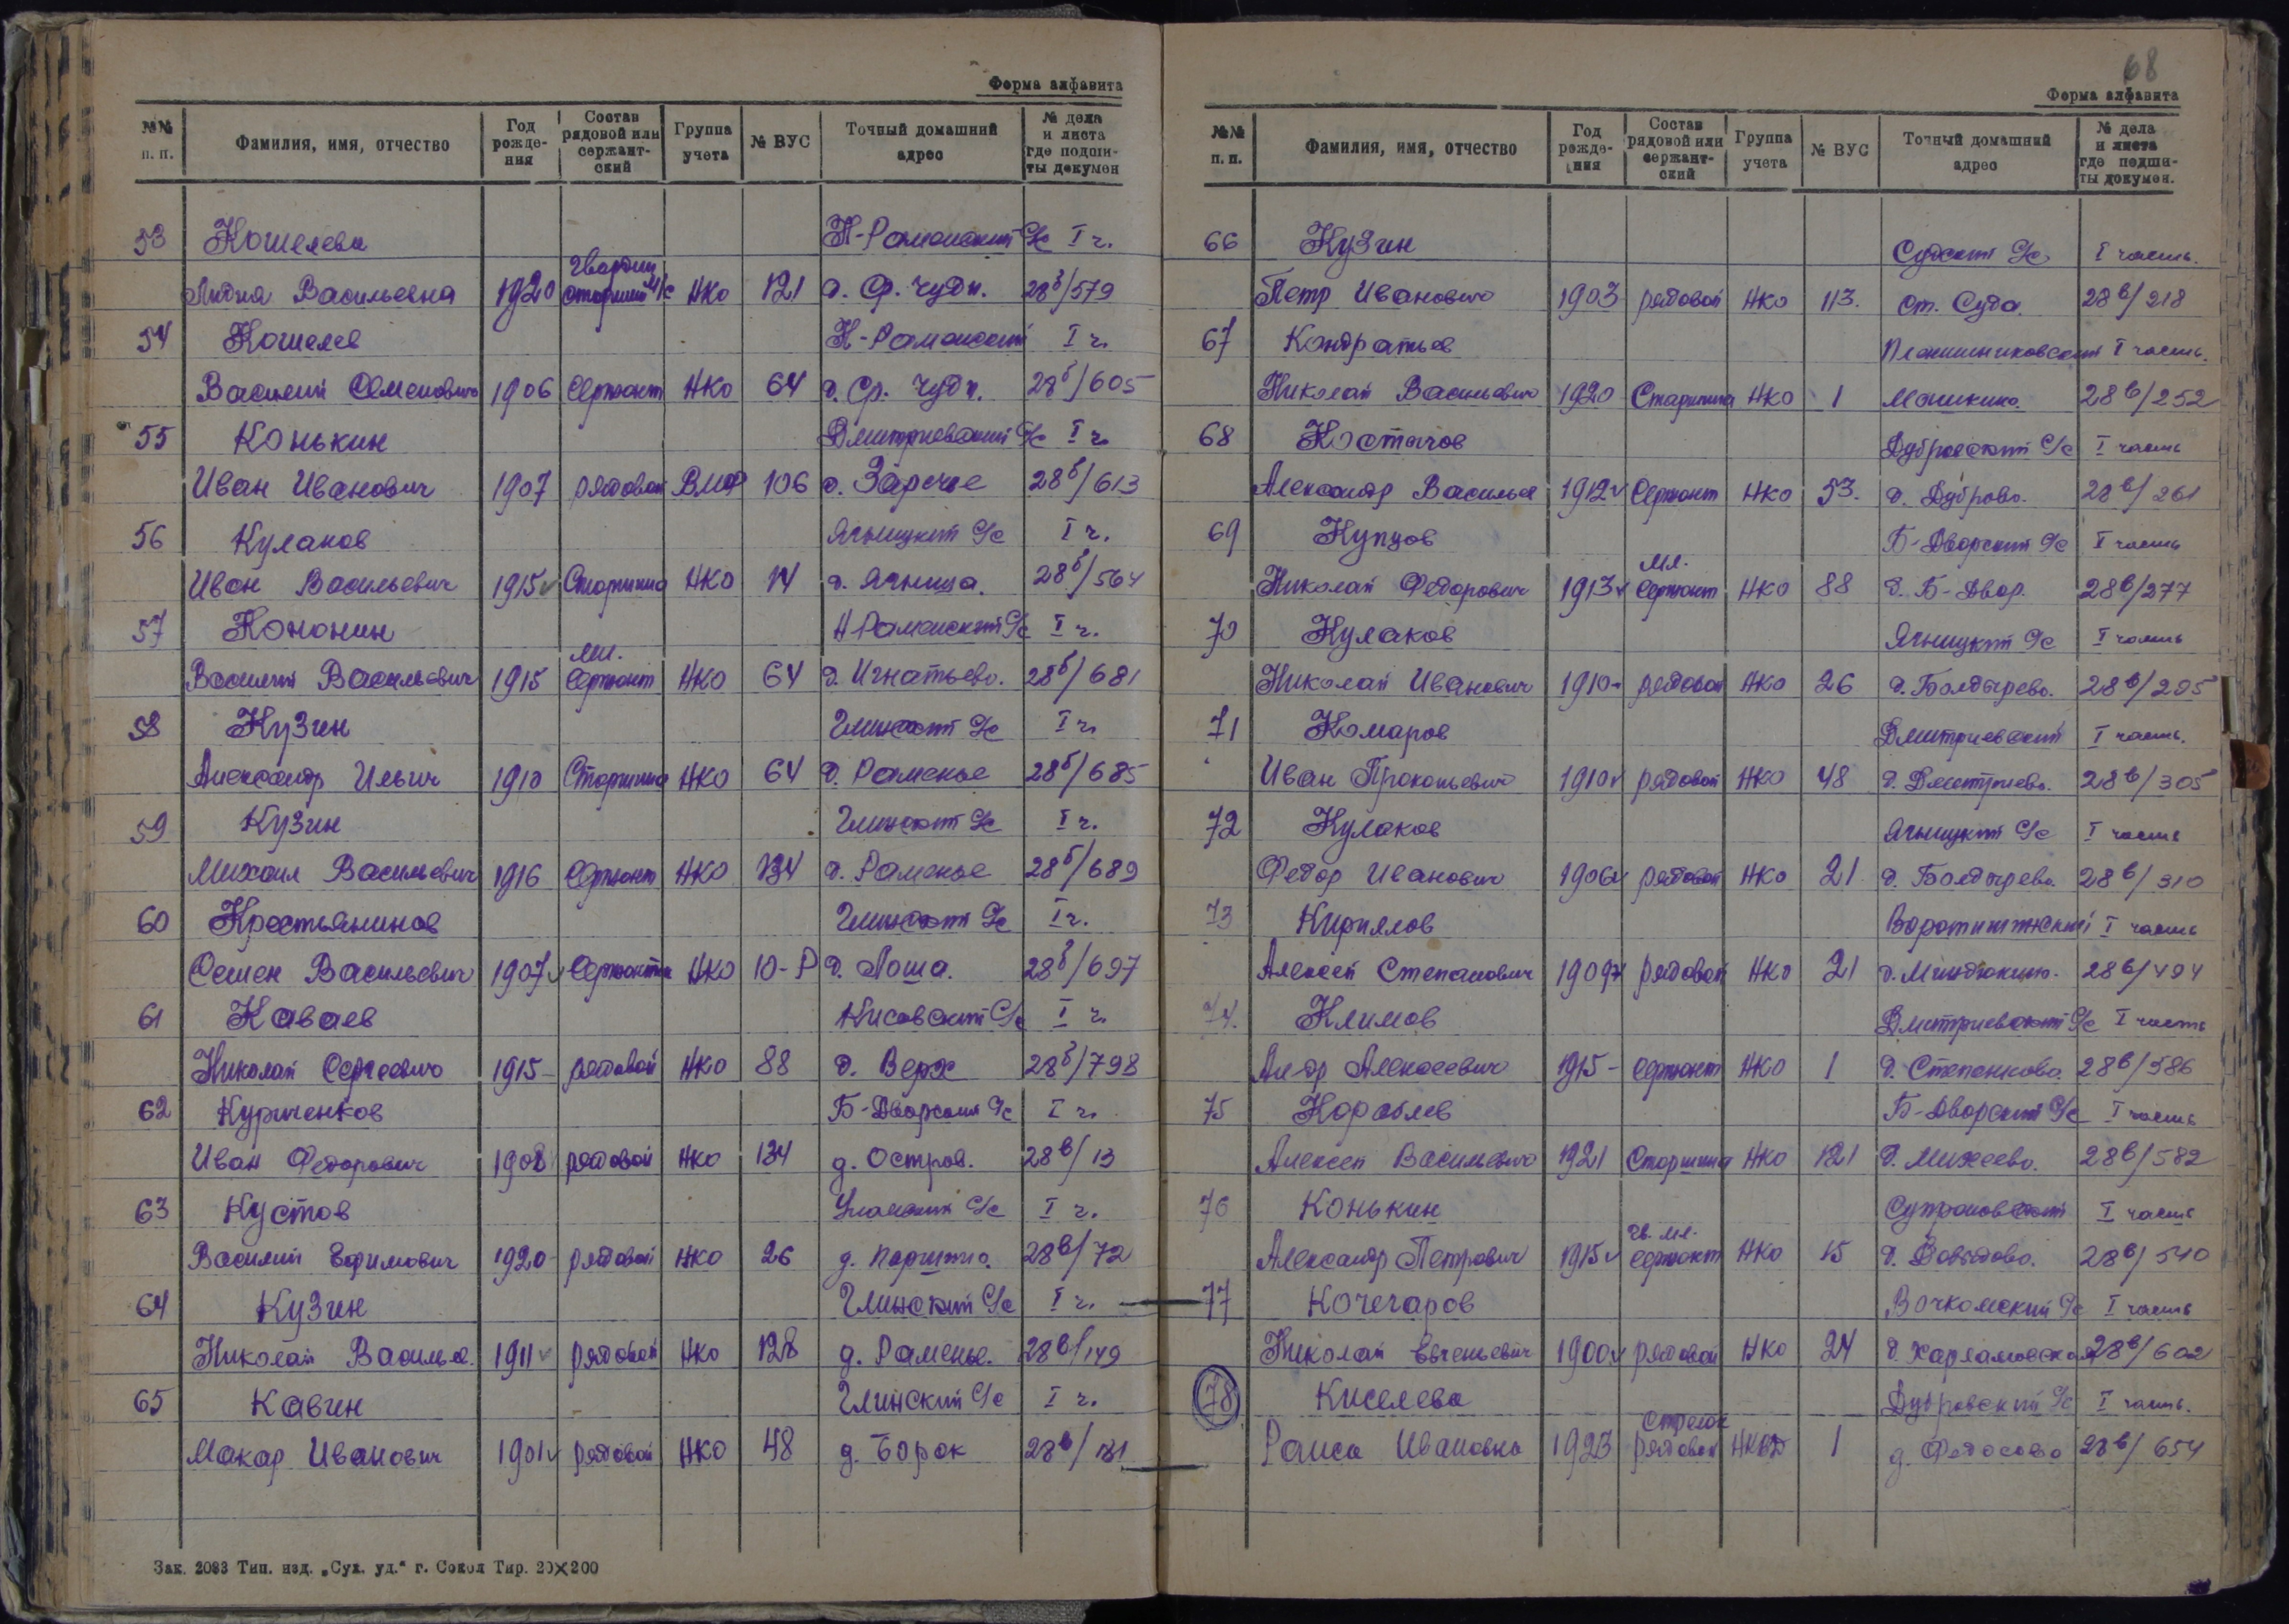 Форма алфавита
№№ п. п. Фамилия, имя, отчество Год рожде-ния Состав рядовой или сержант-ский Группа учета № ВУС Точный домашний адрес № дела и листа где подши-ты докумен
53 Кошелева Н-Раменский С/с I ч.
Лидия Васильевна 1920 Гвардии старший М/с НКО 121 д. Ср. Чуди. 28б/579
54 Кошелев Н-Раменский I ч.
Василий Семенович 1906 Сержант НКО 64 д. Ср. Чуди. 28б/605
55 Конькин Дмитриевский С/с I ч.
Иван Иванович 1907 рядовой ВМФ 106 д. Заречье 28б/613
56 Кулаков Ягницкий С/с I ч.
Иван Васильевич 1915 Старшина НКО 14 д. Ягница. 28б/564
57 Кононин Н-Раменский С/с I ч.
Василий Васильевич 1915 мл. Сержант НКО 64 д. Игнатьево. 28б/681
58 Кузин Глинской С/с I ч.
Александр Ильич 1910 Старшина НКО 64 д. Раменье 28б/685
59 Кузин Глинской С/с I ч.
Михаил Васильевич 1916 Сержант НКО 134 д. Раменье 28б/689
60 Крестьянинов Глинской С/с I ч.
Семен Васильевич 1907 Сержант НКО 10-Р д. Лоша. 28б/697
61 Каваев Кисовский С/с I ч.
Николай Сергеевич 1915 рядовой НКО 88 д. Верх 28б/798
62 Курченков Б-Дворский С/с I ч.
Иван Федорович 1908 рядовой НКО 134 д. Остров. 28в/13
63 Кустов С/с I ч.
Василий Ефимович 1920 рядовой НКО 26 д. 28в/72
64 Кузин Глинский С/с I ч.
Николай Василье. 1911 рядовой НКО 128 д. Раменье. 28в/149
65 Кавин Глинский С/с I ч.
Макар Иванович 1901 рядовой НКО 48 д. Борок 28в/181
Зак. 2083 Тип. изд. „Сух. уд.“ г. Сокол Тир. 20×200
68
Форма алфавита
№№ п. п. Фамилия, имя, отчество Год рожде-ния Состав рядовой или сержант-ский Группа учета № ВУС Точный домашний адрес № дела и листа где подши-ты докумен.
66 Кузин Судский С/с I часть.
Петр Иванович 1903 рядовой НКО 113. ст. Суда. 28в/218
67 Кондратьев I часть.
Николай Васильевич 1920 Старшина НКО 1 Машкино. 28в/252
68 Костычов Дубровский С/с I часть
Александр Васильев 1912 Сержант НКО 53. д. Дуброво. 28в/261
69 Купцов Б-Дворский С/с I часть
Николай Федорович 1913 мл. Сержант НКО 88 д. Б-Двор. 28в/277
70 Кулаков Ягницкий С/с I часть
Николай Иванович 1910 рядовой НКО 26 д. Болдырево. 28в/295
71 Комаров Дмитриевский I часть.
Иван Прокопьевич 1910 рядовой НКО 48 д. Дмитриево. 28в/305
72 Кулаков Ягницкий С/с I часть
Федор Иванович 1906 рядовой НКО 21 д. Болдырево. 28в/310
73 Кирилов I часть
Алексей Степанович 1909 рядовой НКО 21 д. Миндюкино. 28в/494
74. Климов Дмитриевский С/с I часть
Ал-др Алексеевич 1915 - сержант НКО 1 д. Степанково. 28в/586
75 Кораблев Б-Дворский С/с I часть
Алексей Васильевич 1921 Старшина НКО 121 д. Михеево. 28в/582
76 Конькин I часть
Александр Петрович 1915 гв. мл. сержант НКО 15 д. Давыдово. 28в/540
77 Кочегаров I часть
Николай Евгеньевич 1900 рядовой НКО 24 д. Харламовская 28в/602
78 Киселева Дубровский С/с I часть.
Раиса Ивановна 1923 Стрелок рядовой 1 д. Федосово 28в/654